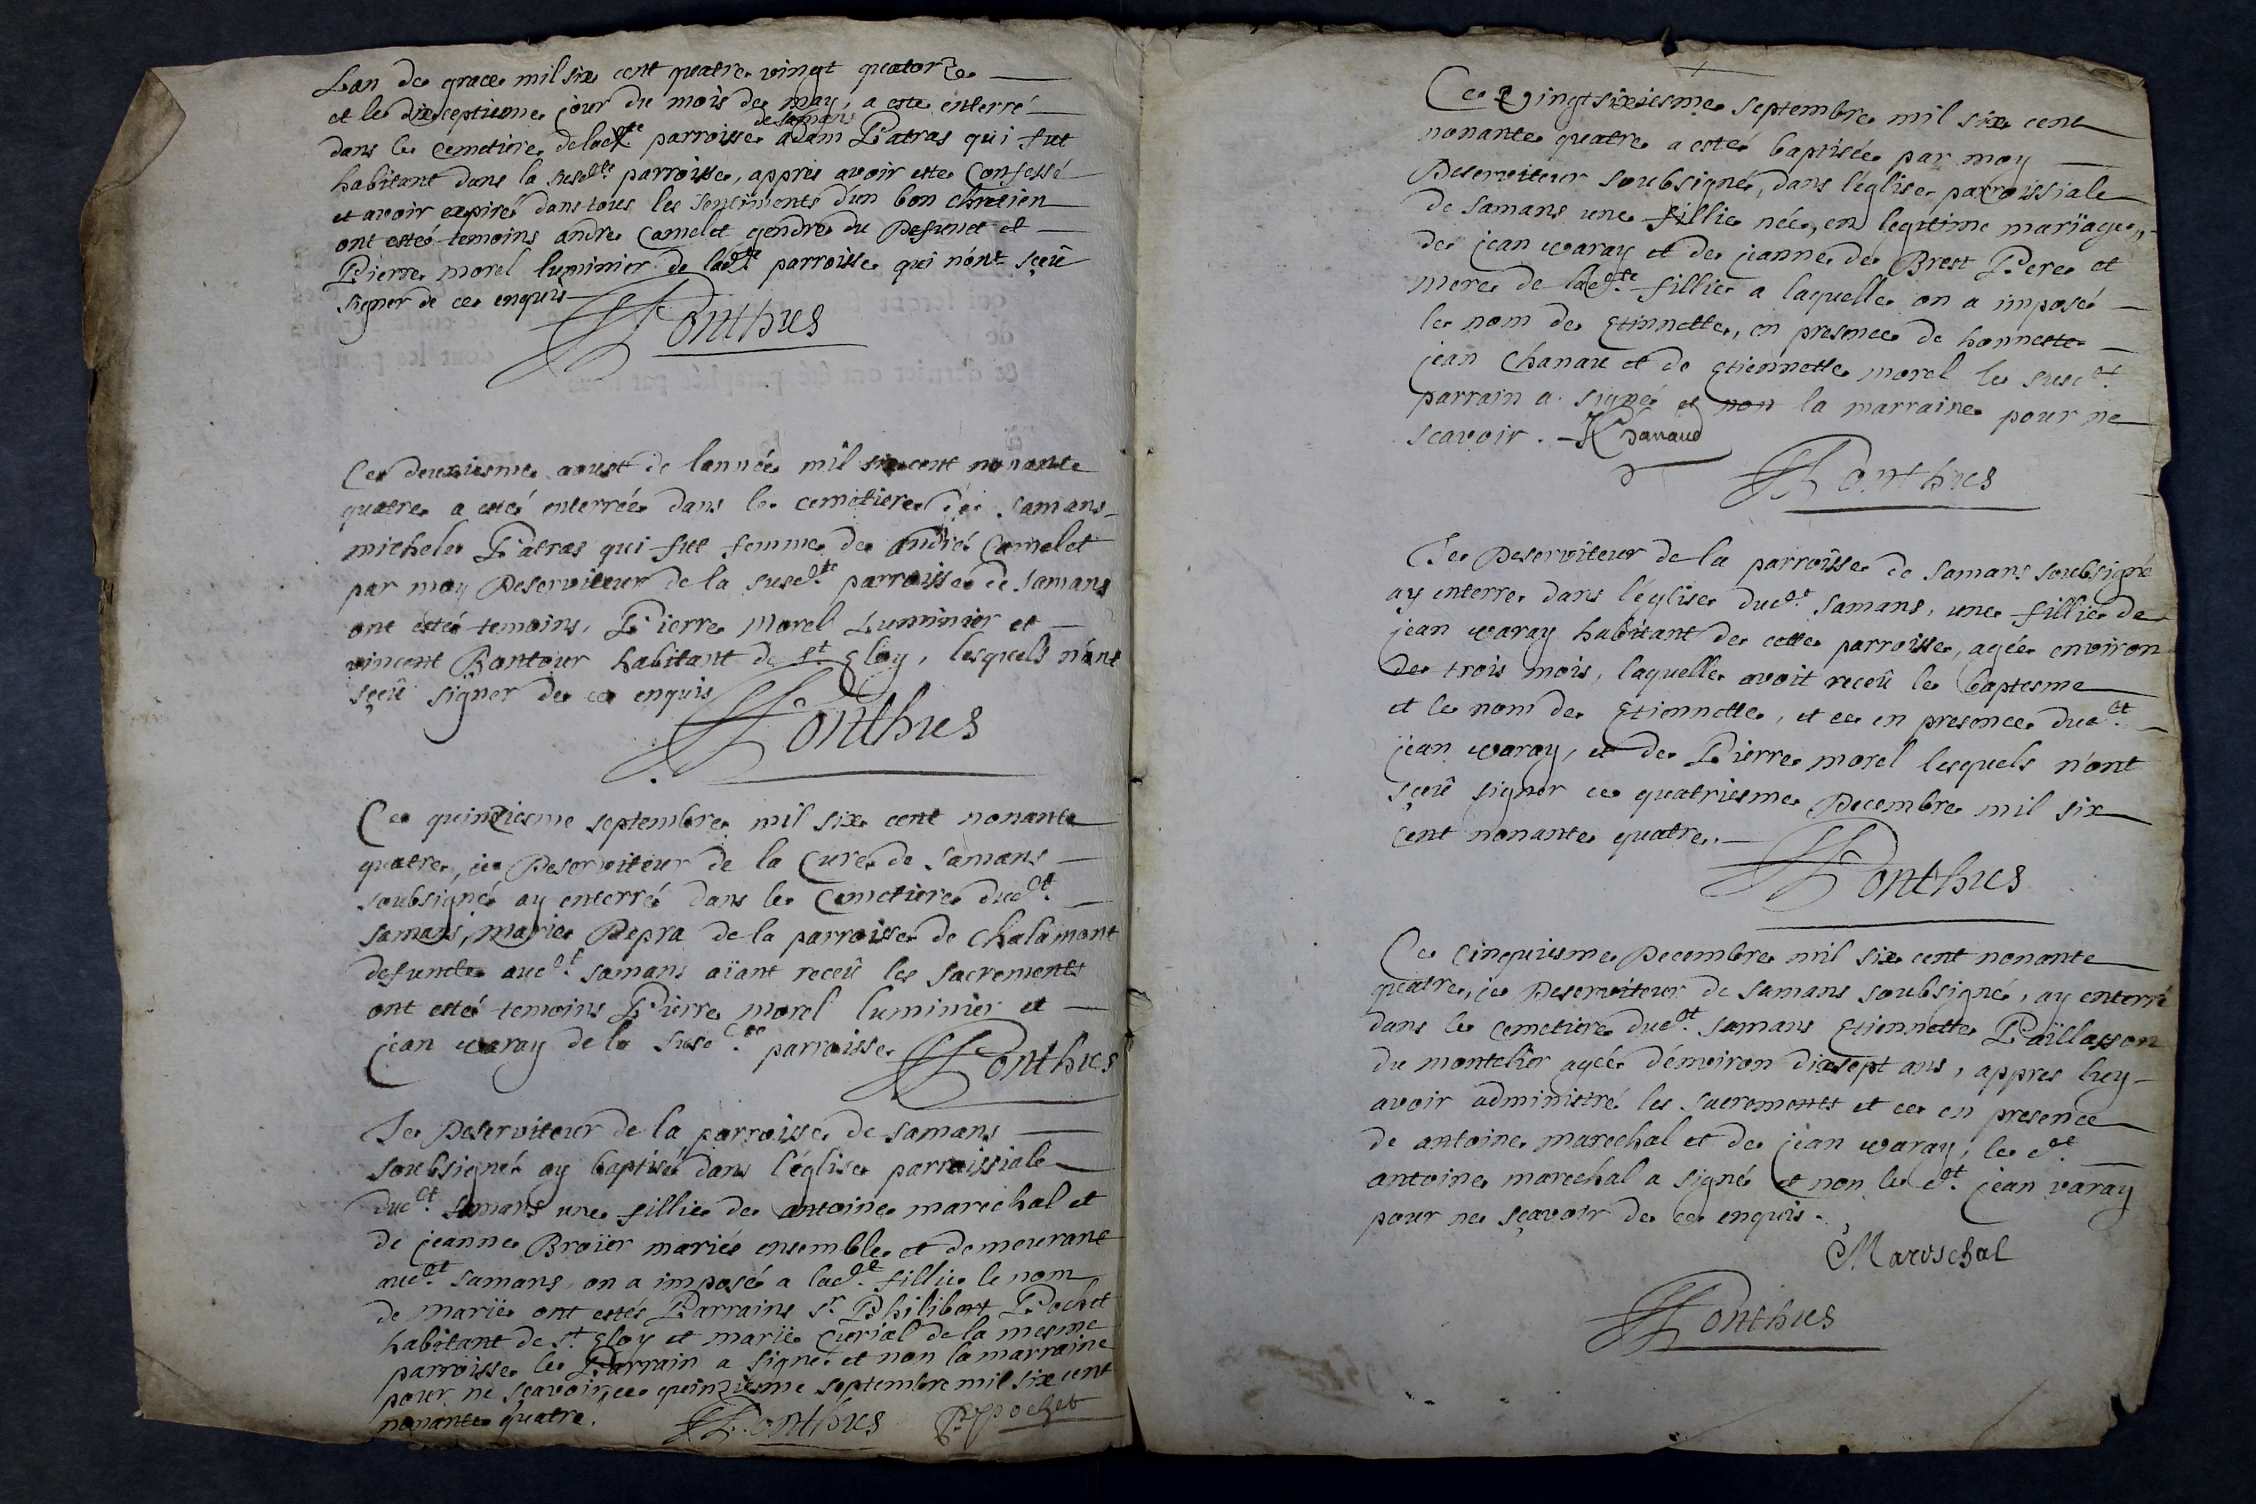 Lan de grace mil six cent quatre vingt quatorze
et le dixseptieme jour du mois de may, a esté enterré
de samans
dans le cemetiere de lad.te parroisse adam Patras qui fut
habitant dans la susd.te parroisse, appres avoir esté Confessé
et avoir expiré dans tous les sentiments d'un bon chretien
ont estés temoins andre Camelet gendre du Defunct et
Pierre morel luminier de lad.te parroisse qui n'ont sçeû
signer de ce enquis
Ponthus
Ce deuxiesme aoust de lannée mil six cent nonante
quatre a esté enterrée dans le cemetiere de samans
michele Patras qui fut femme de andré Camelet
par moy Deserviteur de la susd.te parroisse de samans
ont estés temoins, Pierre Morel Luminier et
vincent Bontour habitant de st Eloy, lesquels n'ont
sçeû signer de ce enquis
Ponthus
Ce quinziesme septembre mil six cent nonante
quatre, je Deserviteur de la Cure de samans
soubsigné ay enterré dans le Cemetiere dud.t
samans, marie Depra de la parroisse de Chalamont
defuncte aud.t samans aïant receû les sacrements
ont estés temoins Pierre morel luminier et
jean varay de la susd.te parroisse Ponthus
Je Deserviteur de la parroisse de samans
soubsigné ay baptisé dans l'église parroissiale
dud.t samans une fillie de antoine marechal et
de jeanne Broïer mariés ensemble et demeurant
aud.t samans, on a imposé a lad.te fillie le nom
de marië ont estés Parrains sr Philibert Pochet
habitant de st Eloy et marië Curial de la mesme
parroisse le Parrain a signé et non la marraine
pour ne sçavoir, ce quinzieme septembre mil six cent
nonante quatre. Ponthus P. Pochet
Ce vingtsixiesme septembre mil six cent
nonante quatre a esté baptisée par moy
Deserviteur soubsigné, dans l'églises parroissiale
de samans une fillie née, en legitime mariäge,
de jean varay et de jeanne de Brest Pere et
mere de lad.te fillie a laquelle on a imposé
le nom de Etiennette, en presence de honneste
jean Chanau et de Etiennette morel le susd.t
parrain a signé et non la marraine pour ne
scavoir. Chanaud
Ponthus
Je Deserviteur de la parroisse de samans soubsigné
ay enterré dans l'églises dud.t samans, une fillie de
jean varay habitant de cette parroisse, agée environ
de trois mois, laquelle avoit receû le baptesme
et le nom de Etiennette, et ce en presence dud.t
jean varay, et de Pierre morel lesquels n'ont
sçeû signer ce quatriesme Decembre mil six
cent nonante quatre.
Ponthus
Ce Cinquiesme Decembre mil six cent nonante
quatre, je Deserviteur de samans soubsigné, ay enterré
dans le cemetiere dud.t samans Etiennette Païllasson
du montelier agée d'environ dixsept ans, appres luy
avoir administré les sacrements et ce en presence
de antoine marechal et de jean varay, le d.t
antoine marechal a signé et non le d.t jean varay
pour ne sçavoir de ce enquis.
Mareschal
Ponthus